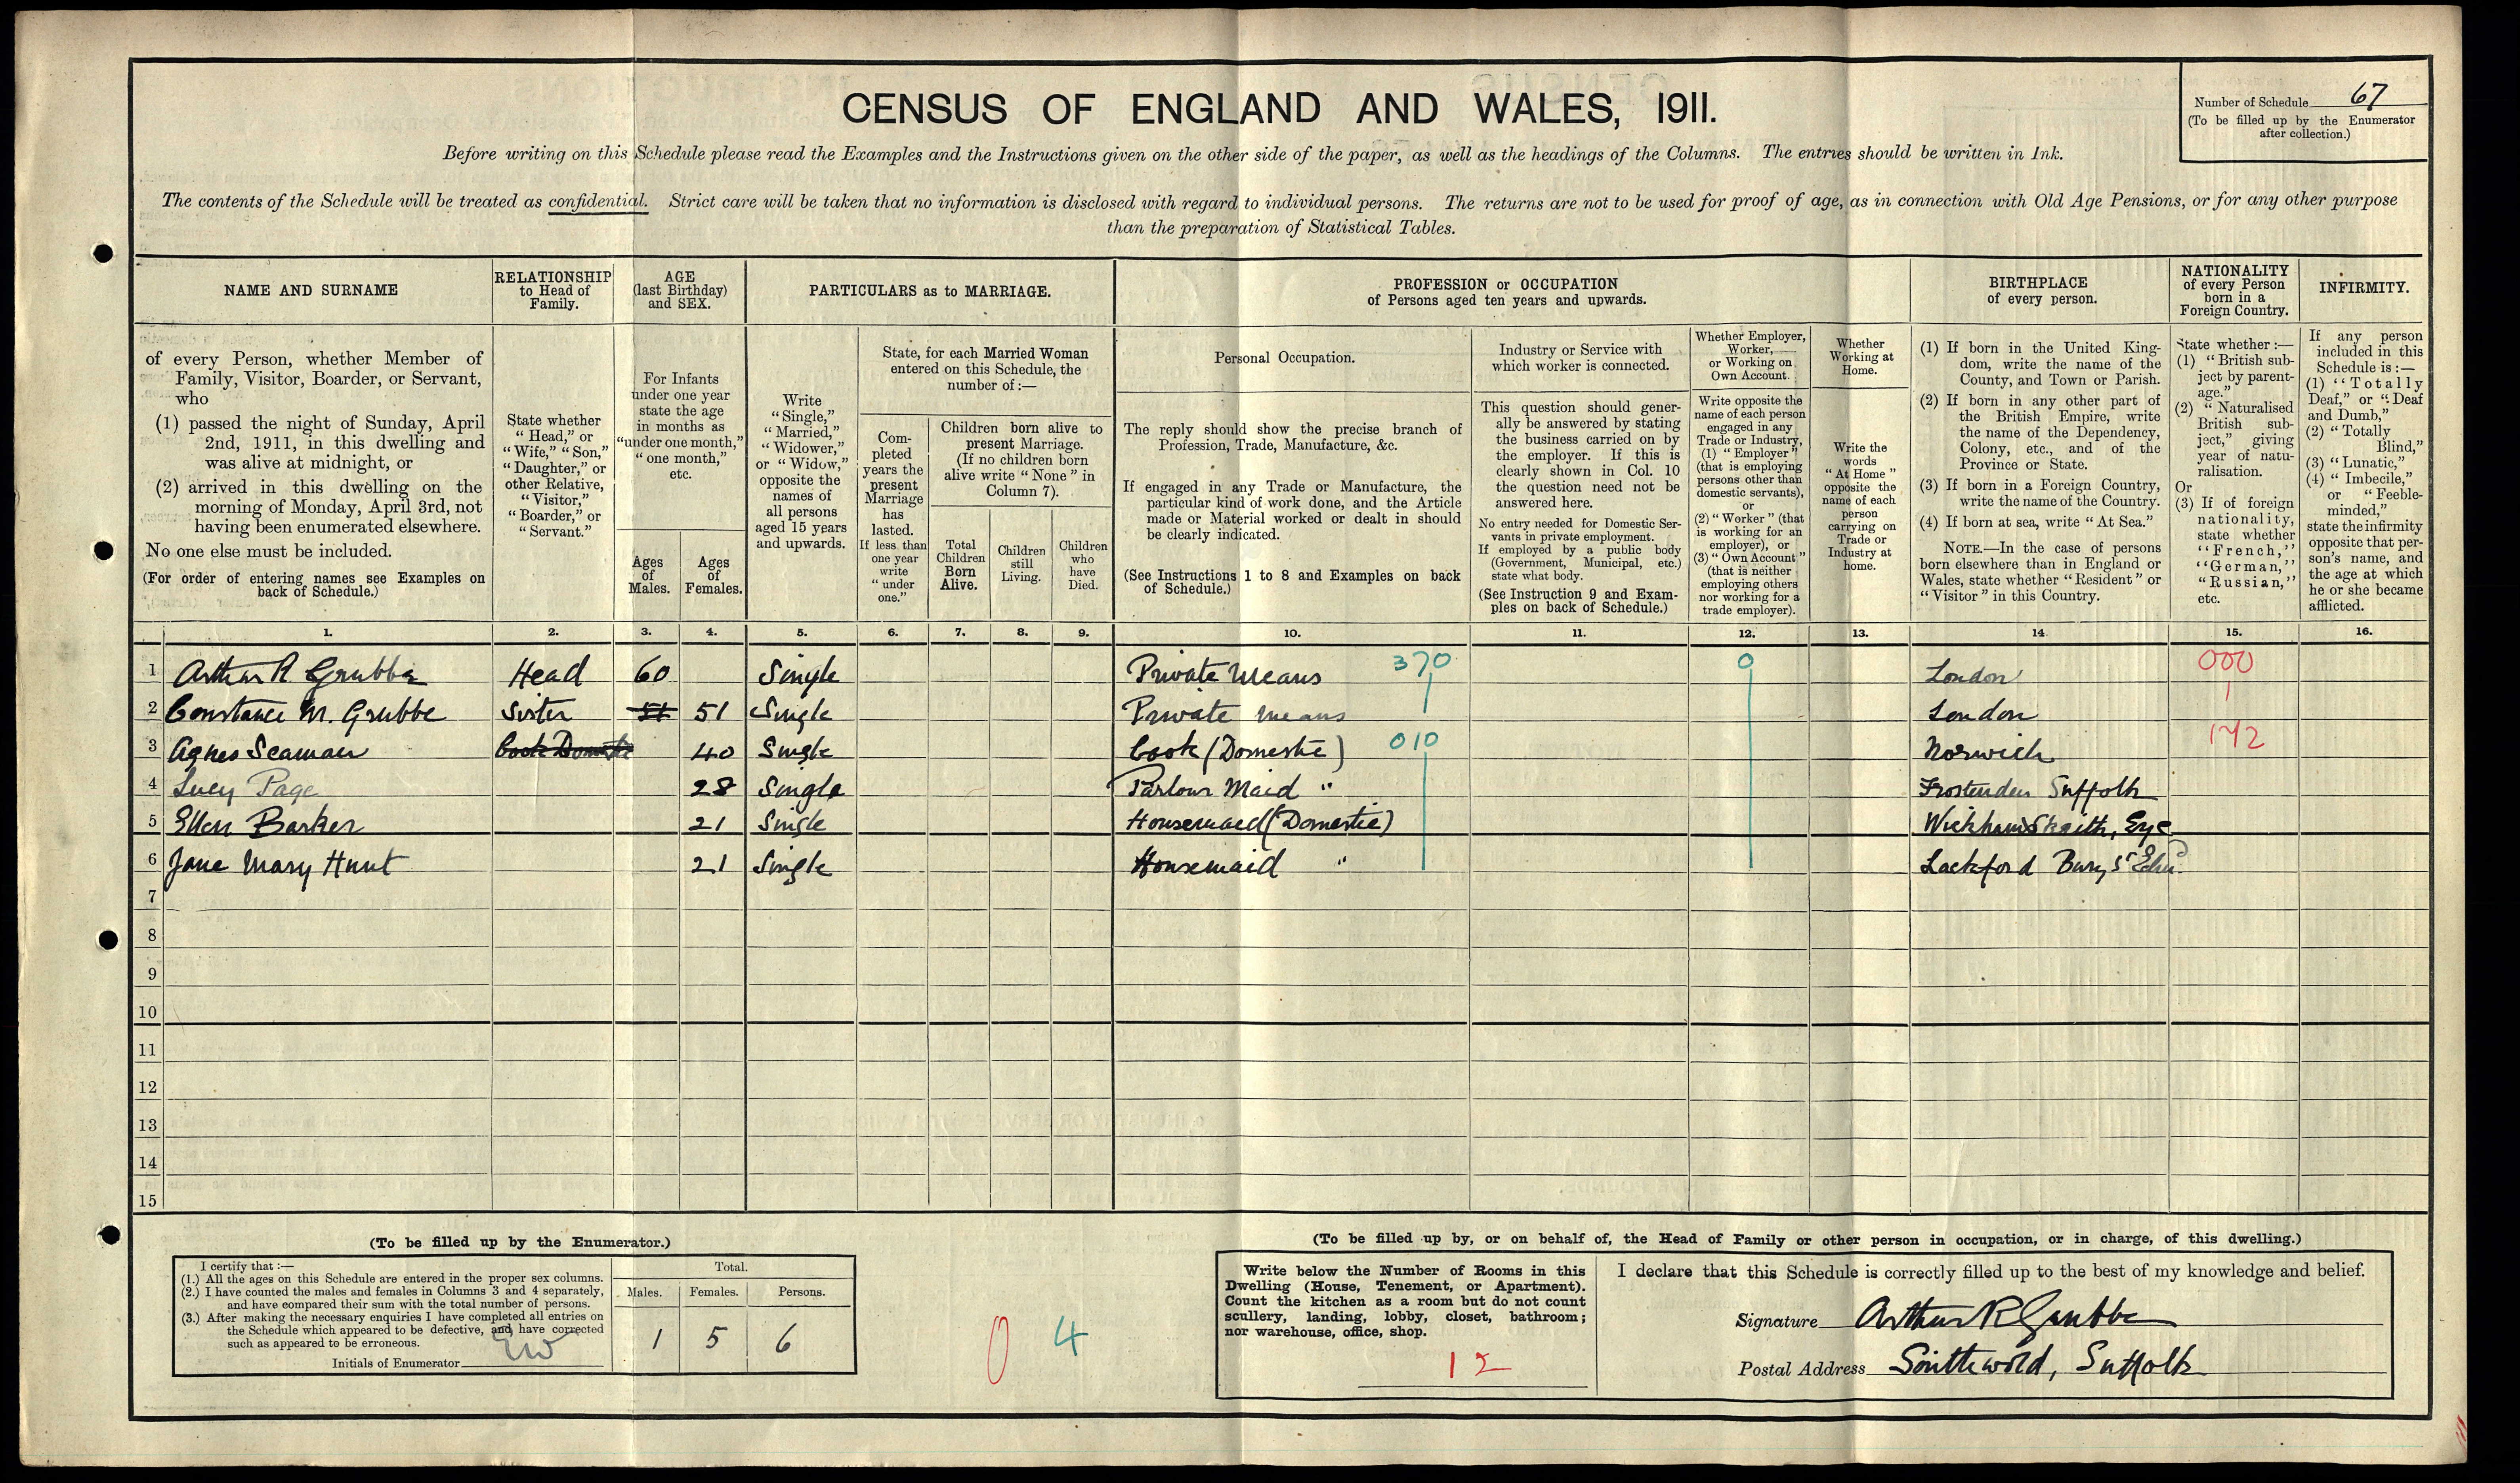 CENSUS OF ENGLAND AND WALES, 1911.
Number of Schedule 67
(To be filled up by the Enumerator
after collection.)
Before writing on this Schedule please read the Examples and the Instructions given on the other side of the paper, as well as the headings of the Columns. The entries should be written in Ink.
The contents of the Schedule will be treated as confidential. Strict care will be taken that no information is disclosed with regard to individual persons. The returns are not to be used for proof of age, as in connection with Old Age Pensions, or for any other purpose
than the preparation of Statistical Tables.
NAME AND SURNAME
of every Person, whether Member of
Family, Visitor, Boarder, or Servant,
who
(1) passed the night of Sunday, April
2nd, 1911, in this dwelling and
was alive at midnight, or
(2) arrived in this dwelling on the
morning of Monday, April 3rd, not
having been enumerated elsewhere.
No one else must be included.
(For order of entering names see Examples on
back of Schedule.)
RELATIONSHIP
to Head of
Family.
State whether
"Head," or
"Wife," "Son,"
"Daughter," or
other Relative,
"Visitor,"
"Boarder," or
"Servant."
AGE
(last Birthday)
and SEX.
For Infants
under one year
state the age
in months as
"under one month,"
"one month,"
etc.
Ages
of
Males.
Ages
of
Females.
PARTICULARS as to MARRIAGE.
Write
"Single,"
"Married,"
"Widower,"
or "Widow,"
opposite the
names of
all persons
aged 15 years
and upwards.
State, for each Married Woman
entered on this Schedule, the
number of:—
Com-
pleted
years the
present
Marriage
has
lasted.
If less than
one year
write
"under
one."
Children born alive to
present Marriage.
(If no children born
alive write "None" in
Column 7).
Total
Children
Born
Alive.
Children
still
Living.
Children
who
have
Died.
PROFESSION or OCCUPATION
of Persons aged ten years and upwards.
Personal Occupation.
The reply should show the precise branch of
Profession, Trade, Manufacture, &c.
If engaged in any Trade or Manufacture, the
particular kind of work done, and the Article
made or Material worked or dealt in should
be clearly indicated.
(See Instructions 1 to 8 and Examples on back
of Schedule.)
Industry or Service with
which worker is connected.
This question should gener-
ally be answered by stating
the business carried on by
the employer. If this is
clearly shown in Col. 10
the question need not be
answered here.
No entry needed for Domestic Ser-
vants in private employment.
If employed by a public body
(Government, Municipal, etc.)
state what body.
(See Instruction 9 and Exam-
ples on back of Schedule.)
Whether Employer,
Worker,
or Working on
Own Account.
Write opposite the
name of each person
engaged in any
Trade or Industry,
(1) "Employer"
(that is employing
persons other than
domestic servants),
or
(2) "Worker" (that
is working for an
employer), or
(3) "Own Account"
(that is neither
employing others
nor working for a
trade employer).
Whether
Working at
Home.
Write the
words
"At Home"
opposite the
name of each
person
carrying on
Trade or
Industry at
home.
BIRTHPLACE
of every person.
(1) If born in the United King-
dom, write the name of the
County, and Town or Parish.
(2) If born in any other part of
the British Empire, write
the name of the Dependency,
Colony, etc., and of the
Province or State.
(3) If born in a Foreign Country,
write the name of the Country.
(4) If born at sea, write "At Sea."
NOTE.—In the case of persons
born elsewhere than in England or
Wales, state whether "Resident" or
"Visitor" in this Country.
NATIONALITY
of every Person
born in a
Foreign Country.
State whether:—
(1) "British sub-
ject by parent-
age."
(2) "Naturalised
British sub-
ject," giving
year of natu-
ralisation.
Or
(3) If of foreign
nationality,
state whether
"French,"
"German,"
"Russian,"
etc.
INFIRMITY.
If any person
included in this
Schedule is:—
(1) "Totally
Deaf," or "Deaf
and Dumb,"
(2) "Totally
Blind,"
(3) "Lunatic,"
(4) "Imbecile,"
or "Feeble-
minded,"
state the infirmity
opposite that per-
son's name, and
the age at which
he or she became
afflicted.
1. 2. 3. 4. 5. 6. 7. 8. 9. 10. 11. 12. 13. 14 15. 16.
1 Arthur R Grubbe Head 60 Single Private Means 370 0 London 000
2 Constance M. Grubbe Sister 51 51 Single Private Means London
3 Agnes Seaman Cook Domestic 40 Single Cook (Domestic) 010 Norwich 172
4 Lucy Page 28 Single Parlour Maid " Frostenden Suffolk
5 Ellen Barker 21 Single Housemaid (Domestic) Wickham Skeith, Eye
6 Jane Mary Hunt 21 Single Housemaid " Lackford Bury St
7
8
9
10
11
12
13
14
15
(To be filled up by the Enumerator.)
I certify that:—
(1.) All the ages on this Schedule are entered in the proper sex columns.
(2.) I have counted the males and females in Columns 3 and 4 separately,
and have compared their sum with the total number of persons.
(3.) After making the necessary enquiries I have completed all entries on
the Schedule which appeared to be defective, and have corrected
such as appeared to be erroneous.
Initials of Enumerator EW
Total.
Males. Females. Persons.
1 5 6
0 4
(To be filled up by, or on behalf of, the Head of Family or other person in occupation, or in charge, of this dwelling.)
Write below the Number of Rooms in this
Dwelling (House, Tenement, or Apartment).
Count the kitchen as a room but do not count
scullery, landing, lobby, closet, bathroom;
nor warehouse, office, shop.
12
I declare that this Schedule is correctly filled up to the best of my knowledge and belief.
Signature Arthur R Grubbe
Postal Address Southwold, Suffolk